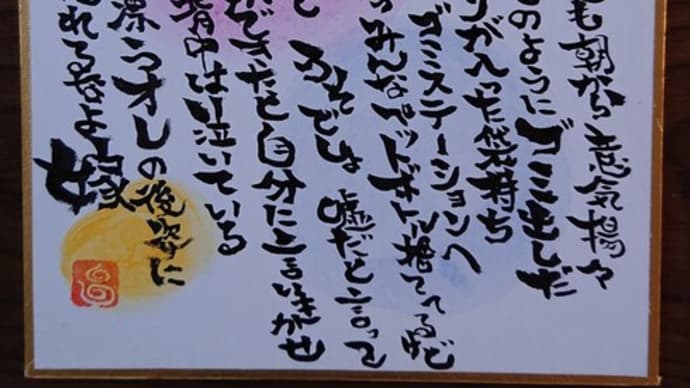 も朝から意気揚々
のようにゴミ出しだ
が入った袋持ち
ゴミステーションへ
みんなペットボトル捨ててるけど
嘘だと言って
できたと自分に言いきかせ
背中は泣いている
漂うオレの後姿に
れるなよ 嫁